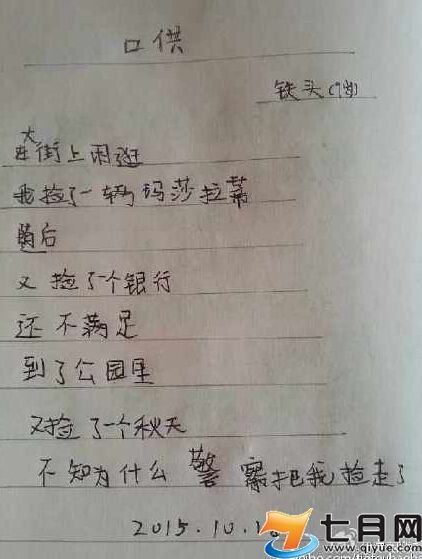 口供
铁头(9岁)
在大街上闲逛
我捡了一辆玛莎拉蒂
随后
又捡了个银行
还不满足
到了公园里
又捡了一个秋天
不知为什么警察把我捡走了
2015.10.1
七月网
www.qiyue.com